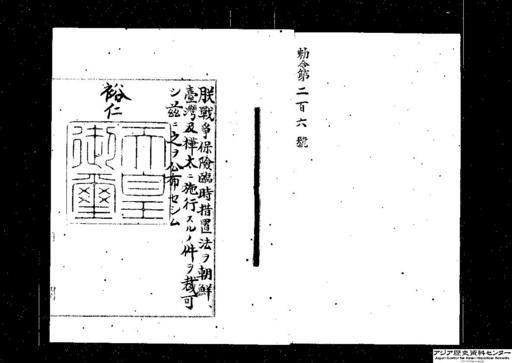 勅令第二百六號
朕戰爭保險臨時措置法ヲ朝鮮、
臺灣及樺太ニ施行スルノ件ヲ裁可
シ茲ニ之ヲ公布セシム
裕仁
天皇
御璽
アジア歴史資料センター
Japan Center for Asian Historical Records